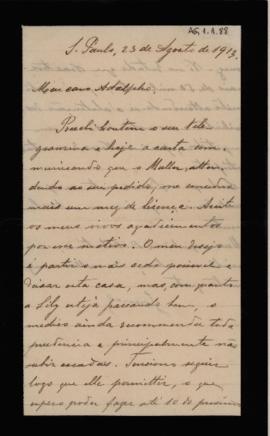 AG.1.1.88
S. Paulo, 23 de Agosto de 1913.
Meu caro Adolpho,
Recebi hontem o seu tele
gramma e hoje a carta com
municando que o Muller, atten
dendo ao seu pedido, me concedeu
mais um mez de licença. Aceite
os meus vivos agradecimentos
por esse motivo. O meu desejo
é partir o mais cedo possivel e
deixar esta casa, mas, com quanto
a Lily esteja passando bem, o
medico ainda recommenda toda
prudencia e principalmente não
subir escadas. Tenciono seguir
logo que elle permittir, o que
espero poder fazer até 10 do proximo